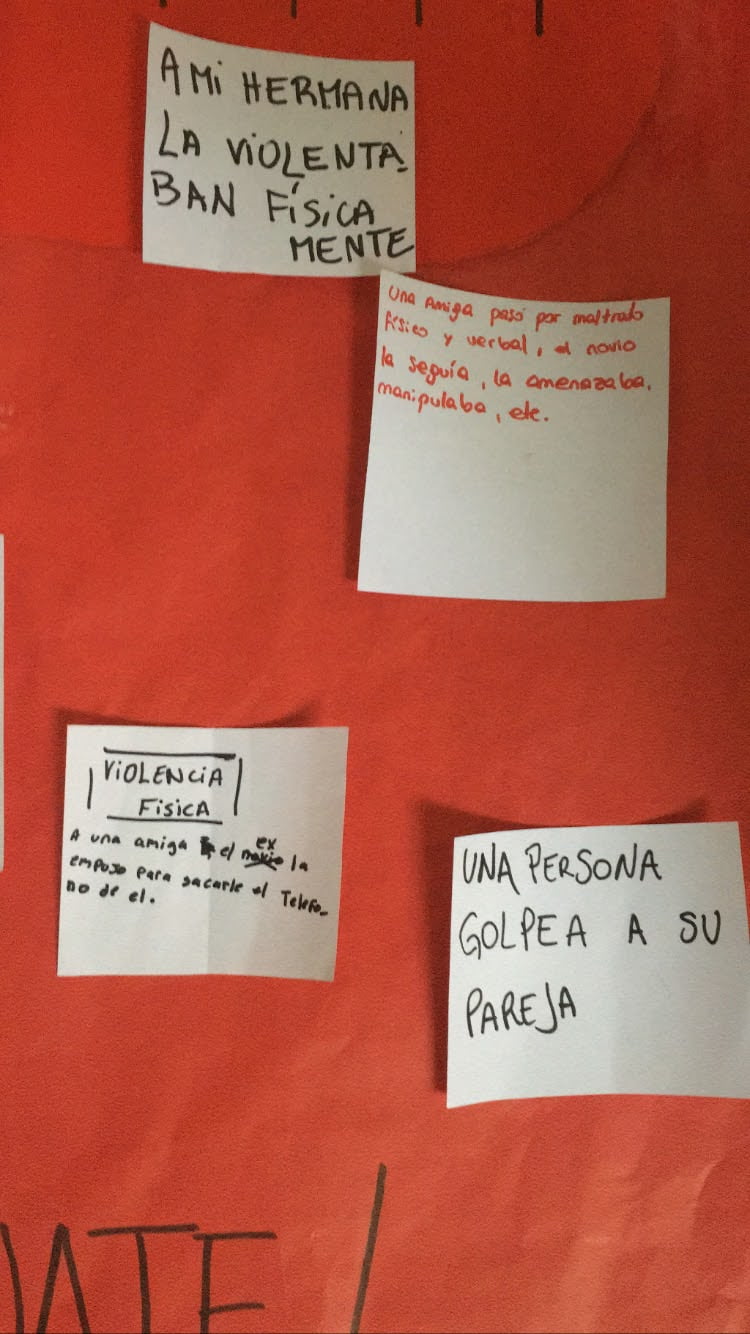 A Mi HERMANA
LA ViOLENTA-
BAN FíSiCA
MENTE
Una Amiga pasó por maltrado
físico y verbal, el novio
la seguía, la amenazaba,
manipulaba, etc.
ViOLENCiA
FisicA
A una amiga el ex la
empujo para sacarle el Telefo-
no de el.
UNA PERSONA
GOLPEA A SU
PAREJA
ATE